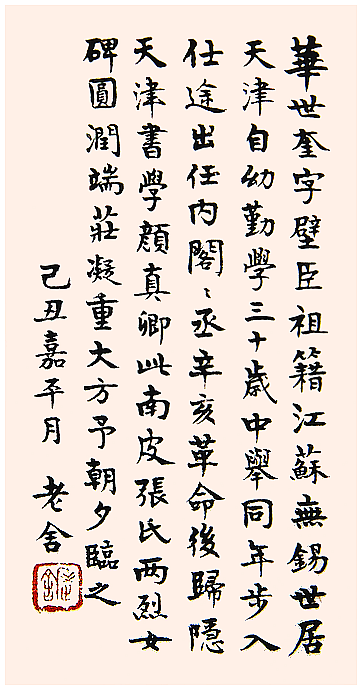 華世奎字壁臣祖籍江蘇無錫世居
天津自幼勤學三十歲中舉同年步入
仕途出任内閣閣丞辛亥革命後歸隱
天津書學顔真卿此南皮張氏两烈女
碑圓潤端莊凝重大方予朝夕臨之
己丑嘉平月 老舍
老舍